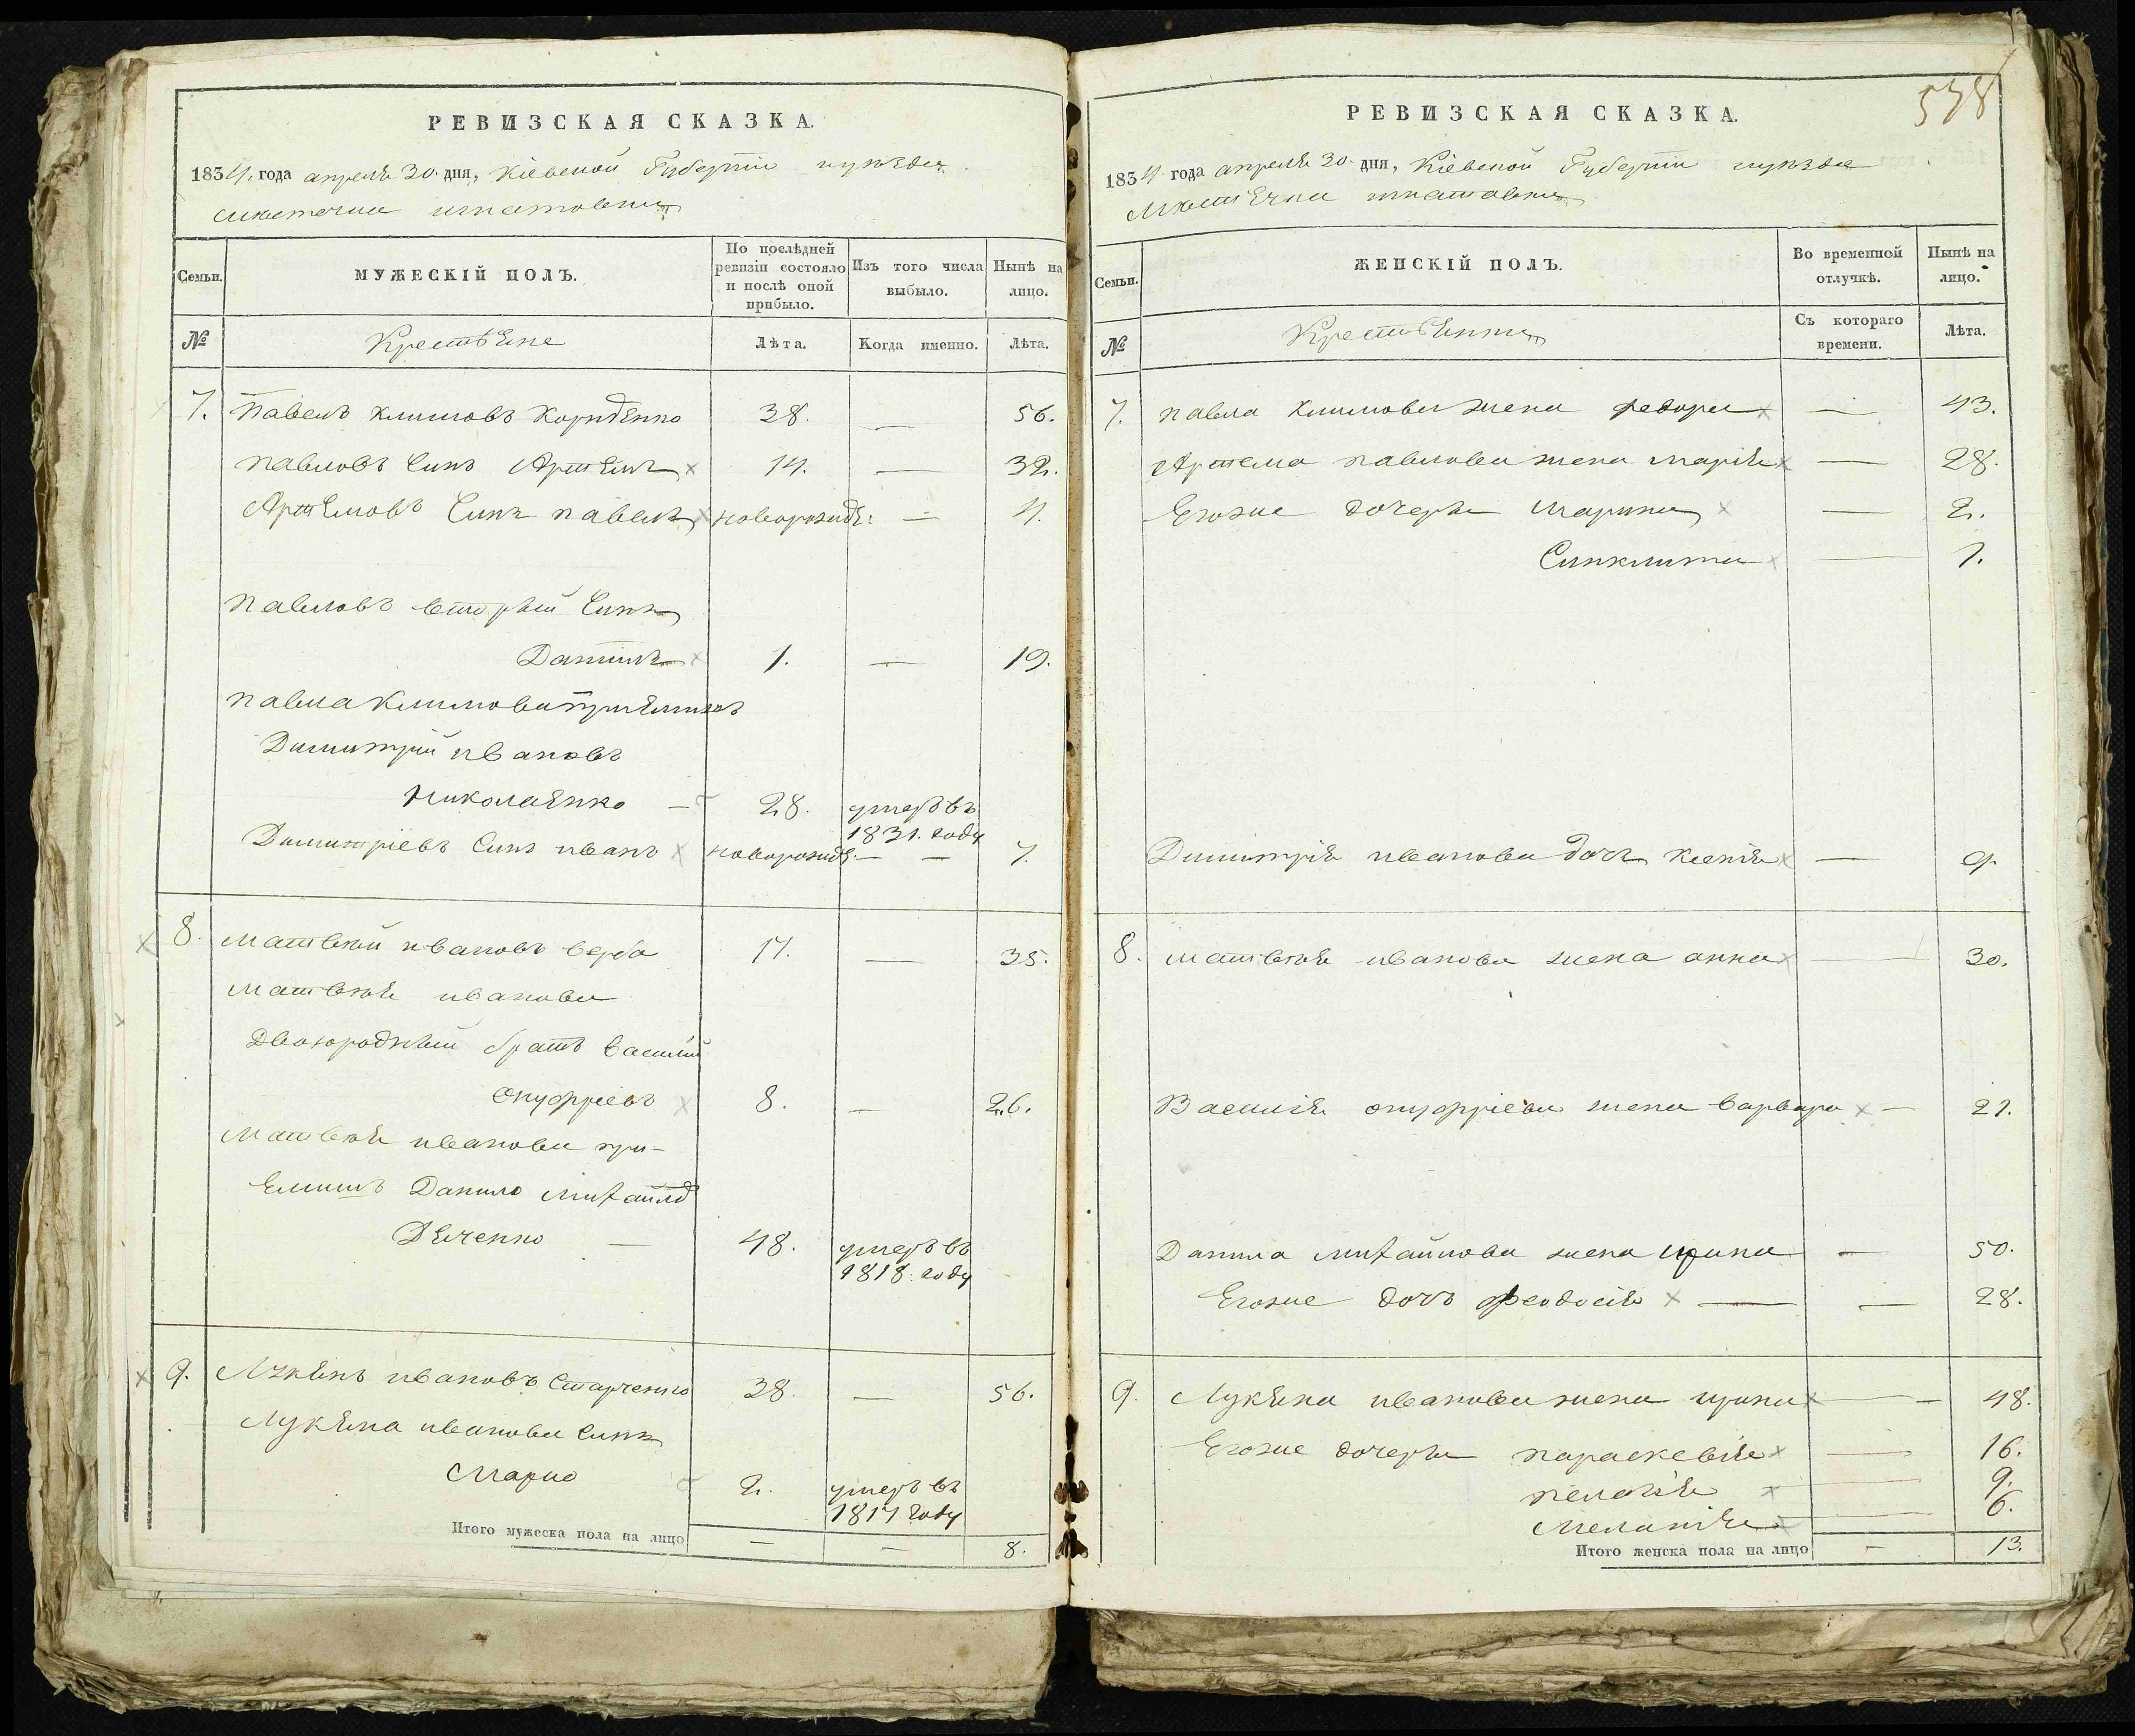 РЕВИЗСКАЯ СКАЗКА.
1834. года апреля 30. дня, Кіевской Губерніи уезда
местечка Игнатовки
Семьи.
МУЖЕСКІЙ ПОЛЪ.
По послѣдней ревизіи состояло и послѣ оной прибыло.
Изъ того числа выбыло.
Нынѣ на лицо.
№
Крестьяне
Лѣта.
Когда именно.
Лѣта.
7. Павелъ климовъ 38. — 56.
павловъ Синъ Артемъ 14. — 32.
Артемовъ Синъ павелъ новорожде: — 4.
павловъ вторый Синъ
Данилъ 1. — 19.
павла Климова приемишъ
Димитрій ивановъ
Николаенко — 28. умеръ въ
1831. году
Димитріевъ Синъ иванъ новорожде: — — 7.
8. матвѣй ивановъ верба 17. — 35.
матвѣя иванова
Двоюродный братъ василій
онуфріевъ 8. — 26.
матвѣя иванова при-
емишъ Данило михайло
Дяченко — 48. умеръ въ
1818. году
9. Лукянъ ивановъ Старченко 38. — 56.
Лукяна иванова Синъ
Марко 2. умеръ въ
1817 году
Итого мужеска пола на лицо — — 8.
538
РЕВИЗСКАЯ СКАЗКА.
1834 года апреля 30. дня, Кіевской Губерніи уезда
местечка Игнатовки
Семьи.
ЖЕНСКІЙ ПОЛЪ.
Во временной отлучкѣ.
Нынѣ на лицо.
№
Съ котораго времени.
Лѣта.
7. павла климова жена федора — 43.
Артема павлова жена марія — 28.
Егоже дочери марина — 2.
Синклита — 1.
Димитрія иванова дочъ ксенія — 9.
8. матвѣя иванова жена анна — 30.
Василія онуфріева жена варвара — 21.
Данила михайлова жена ирина — 50.
Егоже дочъ феодосія — — 28.
9. Лукяна иванова жена ирина — — 48.
Егоже дочери параскевія — 16.
пелагія — 9.
Меланія — 6.
Итого женска пола на лицо — 13.